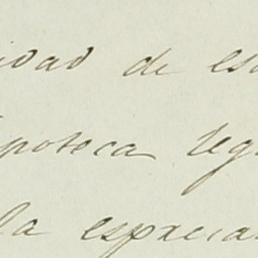 idad de es
ipoteca leg
la especia